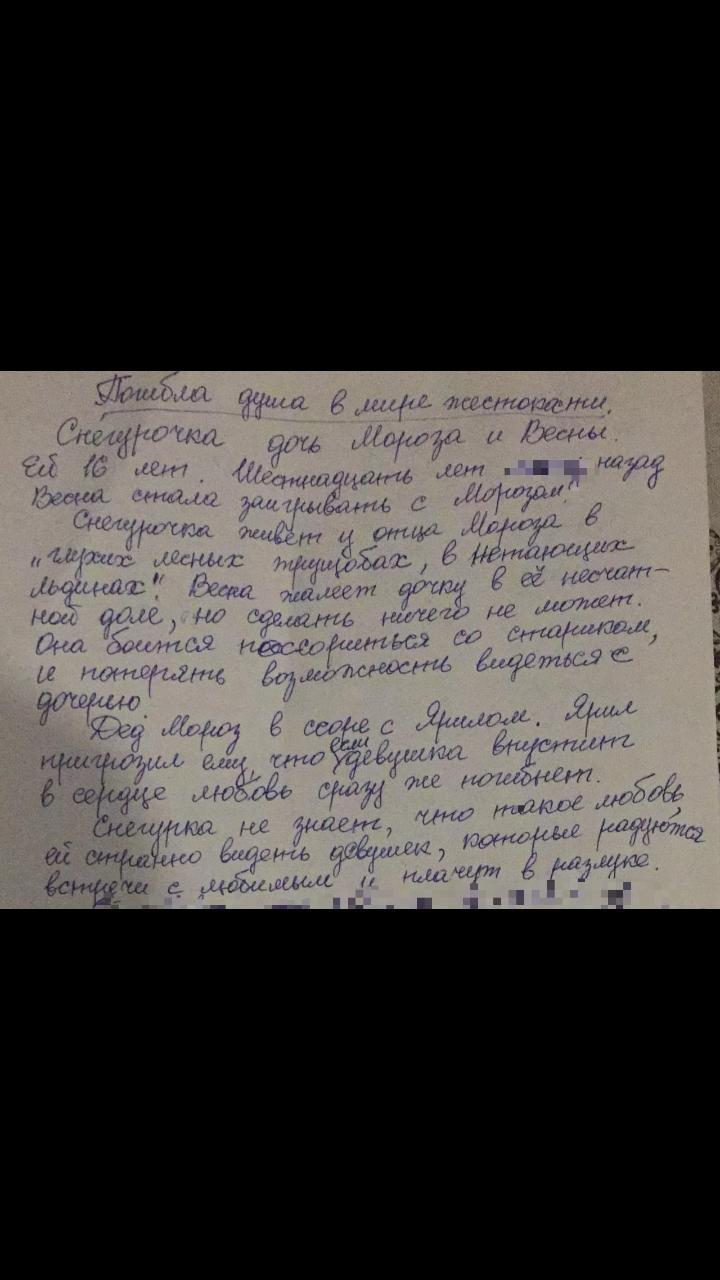 Погибла душа в мире жестокости.
Снегурочка дочь Мороза и Весны.
Ей 16 лет. Шестнадцать лет назад
Весна стала заигрывать с Морозом".
Снегурочка живёт у отца Мороза в
„глухих лесных трущобах, в нетающих
льдинах". Весна жалеет дочку в её несчат-
ной доле, но сделать ничего не может.
Она боится поссориться со стариком,
и потерять возможность видеться с
дочерью
Дед Мороз в ссоре с Ярилом. Ярил
пригрозил ему, что если девушка впустит
в сердце любовь сразу же погибнет.
Снегурка не знает, что такое любовь,
ей странно видеть девушек, которые радуются
встречи с любимым и плачут в разлуке.